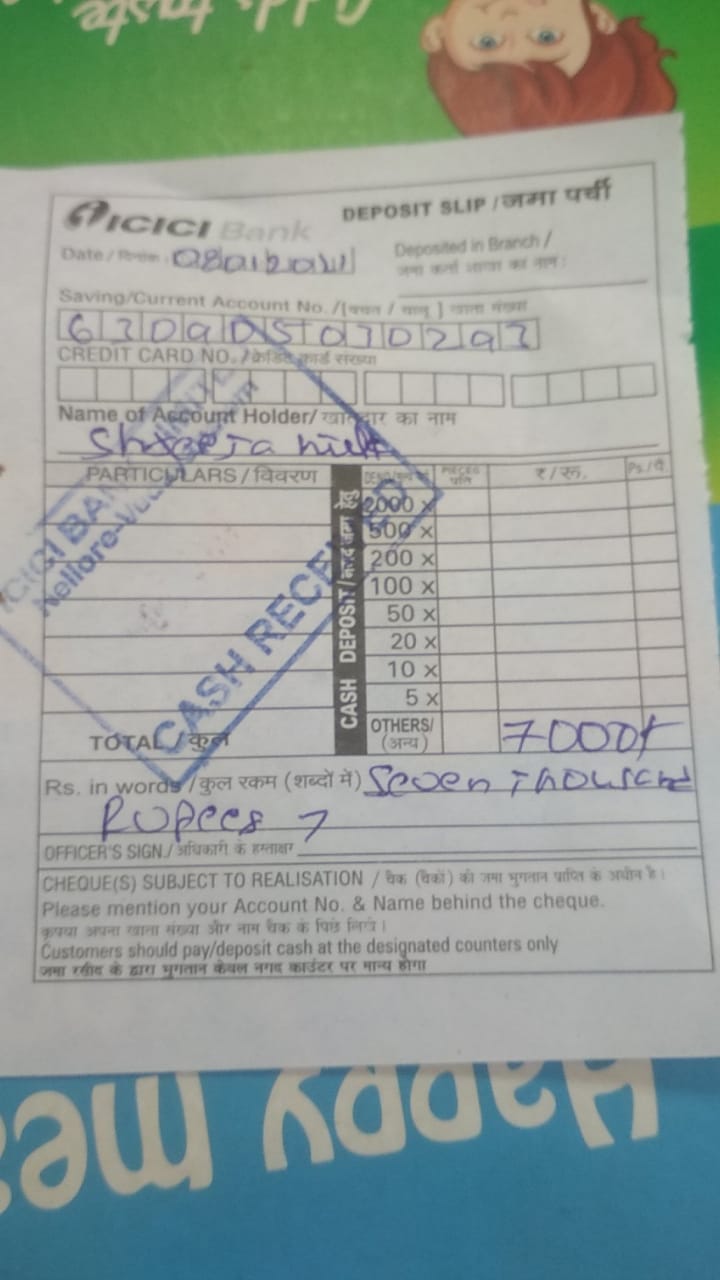 ICICI Bank
DEPOSIT SLIP / जमा पर्ची
Date / दिनांक :
Deposited in Branch /
जमा कर्ता शाखा का नाम :
Saving/Current Account No. /[बचत / चालू ] खाता संख्या
CREDIT CARD NO. / क्रेडिट कार्ड संख्या
Name of Account Holder/ खातेदार का नाम
PARTICULARS / विवरण
CASH DEPOSIT / नकद जमा हेतु
PIECES
₹ / रू.
Ps./पै.
2000 x
500 x
200 x
100 x
50 x
20 x
10 x
5 x
TOTAL / कुल
OTHERS/
(अन्य)
7000/-
ICICI BANK
Nellore-
CASH RECEIVED
Rs. in words /कुल रकम (शब्दों में) Seven Thousand
Rupees
OFFICER'S SIGN./ अधिकारी के हस्ताक्षर
CHEQUE(S) SUBJECT TO REALISATION / चैक (चैकों) की जमा भुगतान प्राप्ति के अधीन है।
Please mention your Account No. & Name behind the cheque.
कृपया अपना खाता संख्या और नाम चैक के पिछे लिखें।
Customers should pay/deposit cash at the designated counters only
जमा रसीद के द्वारा भुगतान केवल नगद काउंटर पर मान्य होगा
Happy me